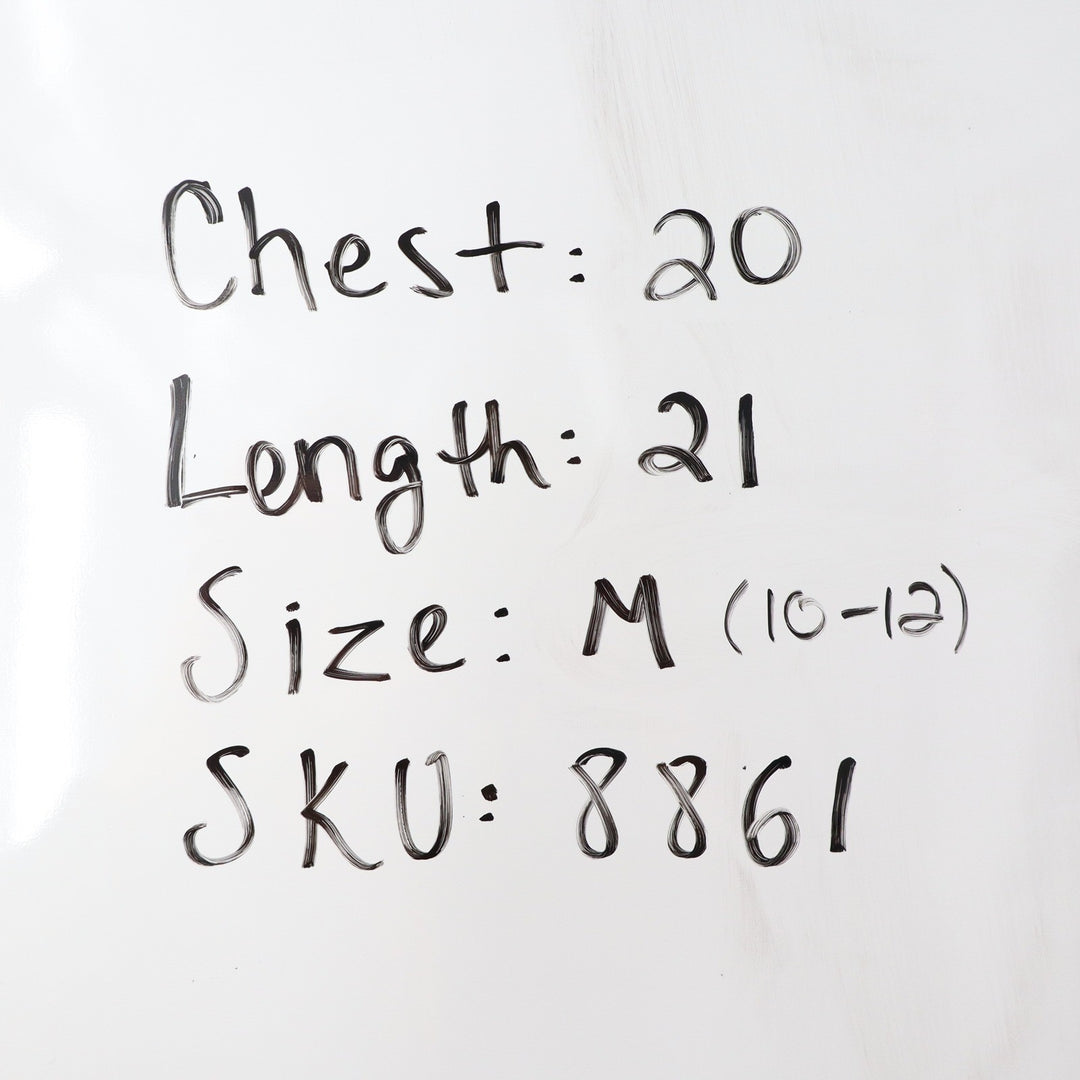 Chest: 20
Length: 21
Size: M (10-12)
SKU: 8861